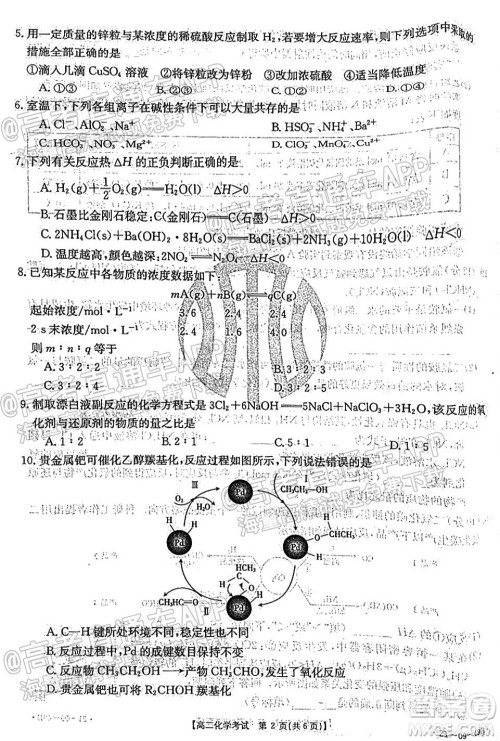 5. 用一定质量的锌粒与某浓度的稀硫酸反应制取 H₂,若要增大反应速率,则下列选项中采取的
措施全部正确的是
①滴入几滴 CuSO₄ 溶液 ②将锌粒改为锌粉 ③改加浓硫酸
6. 室温下,下列各组离子在碱性条件下可以大量共存的是
A. Cl⁻、AlO₂⁻、Na⁺ B. HSO₃⁻、NH₄⁺、Ba²⁺
C. HCO₃⁻、NO₃⁻、Mg²⁺ D. ClO⁻、MnO₄⁻、Cu²⁺
7. 下列有关反应热 ΔH 的正负判断正确的是
A. H₂(g)+1/2O₂(g)══H₂O(l) ΔH>0
B. 石墨比金刚石稳定:C(金刚石)══C(石墨) ΔH>0
C. 2NH₄Cl(s)+Ba(OH)₂·8H₂O(s)══BaCl₂(s)+2NH₃(g)+10H₂O(l) ΔH>0
D. 温度越高,颜色越深:2NO₂⇌N₂O₄ ΔH>0
8. 已知某反应中各物质的浓度数据如下:
mA(g)+nB(g)⇌qC(g)
起始浓度/mol·L⁻¹ 3.6 2.4 0
2 s 末浓度/mol·L⁻¹ 2.4 1.6 4.0
则 m∶n∶q 等于
A. 3∶2∶4 B. 3∶2∶1
C. 3∶2∶2
9. 制取漂白液副反应的化学方程式是 3Cl₂+6NaOH══5NaCl+NaClO₃+3H₂O,该反应的氧
化剂与还原剂的物质的量之比是
A. 1∶2 B. 2∶1 C. 5∶1 D. 1∶5
10. 贵金属钯可催化乙醇羰基化,过程如图所示,下列说法错误的是
Ⅲ
Ⅰ
O₂
H₂O
CH₃CH₂—OH
Pd
H H
Pd
H
OCH₂CH₃
Pd
CH₃
H
Pd
CH₃HC═O
Ⅱ
A. C—H 键所处环境不同,稳定性不同
B. 反应过程中,Pd 的成键数目保持不变
C. 反应物 CH₃CH₂OH→产物 CH₃CHO,发生了氧化反应
D. 贵金属钯也可将 R₂CHOH 羰基化
【高二化学考试 第 2 页(共 6 页)】